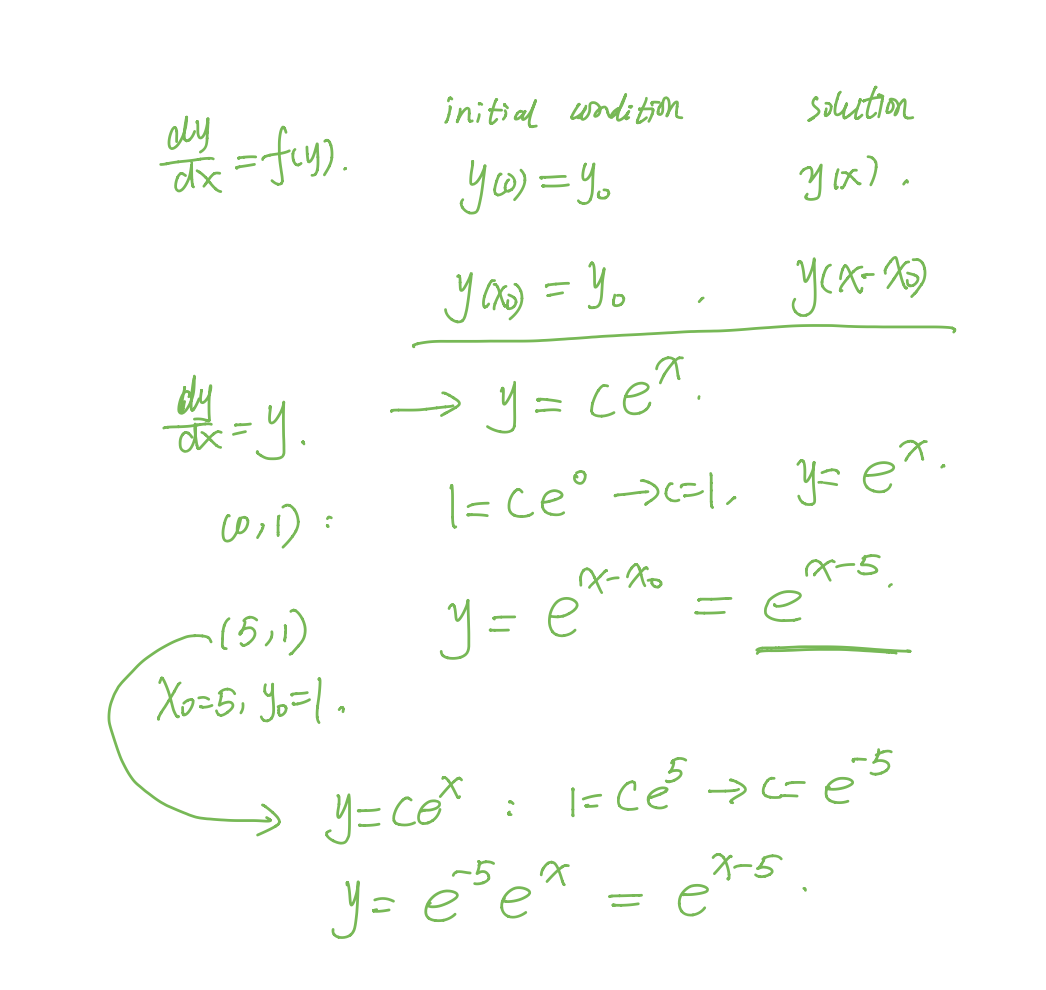 initial condition solution
dy/dx = f(y). y(0) = y₀ y(x).
y(x₀) = y₀ . y(x-x₀)
dy/dx = y. → y = ce^x.
(0,1) : 1 = ce⁰ → c=1. y = e^x.
y = e^(x-x₀) = e^(x-5).
(5,1)
x₀=5, y₀=1.
y=ce^x : 1 = ce⁵ → c = e⁻⁵
y = e⁻⁵e^x = e^(x-5).